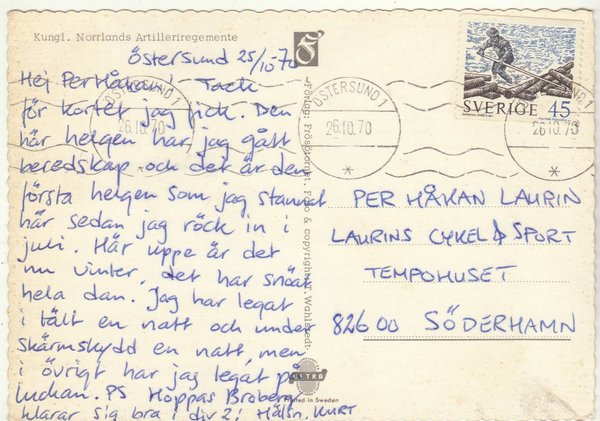 Kungl. Norrlands Artilleriregemente
Östersund 25/10-70
Hej Per Håkan! Tack
för kortet jag fick. Den
här helgen har jag gått
beredskap och det är den
första helgen som jag stannat
här sedan jag röck in i
juli. Här uppe är det
nu vinter, det har snöat
hela dan. Jag har legat
i tält en natt och under
skärmskydd en natt, men
i övrigt har jag legat på
luckan. PS Hoppas Broberg
klarar sig bra i div 2! Hälsn. KURT
Förlag: Foto & copyright:
ULTRA
Printed in Sweden
SVERIGE 45
ÖSTERSUND 1
26.10.70
26.10.70
26.10.70
PER HÅKAN LAURIN
LAURINS CYKEL & SPORT
TEMPOHUSET
826 00 SÖDERHAMN